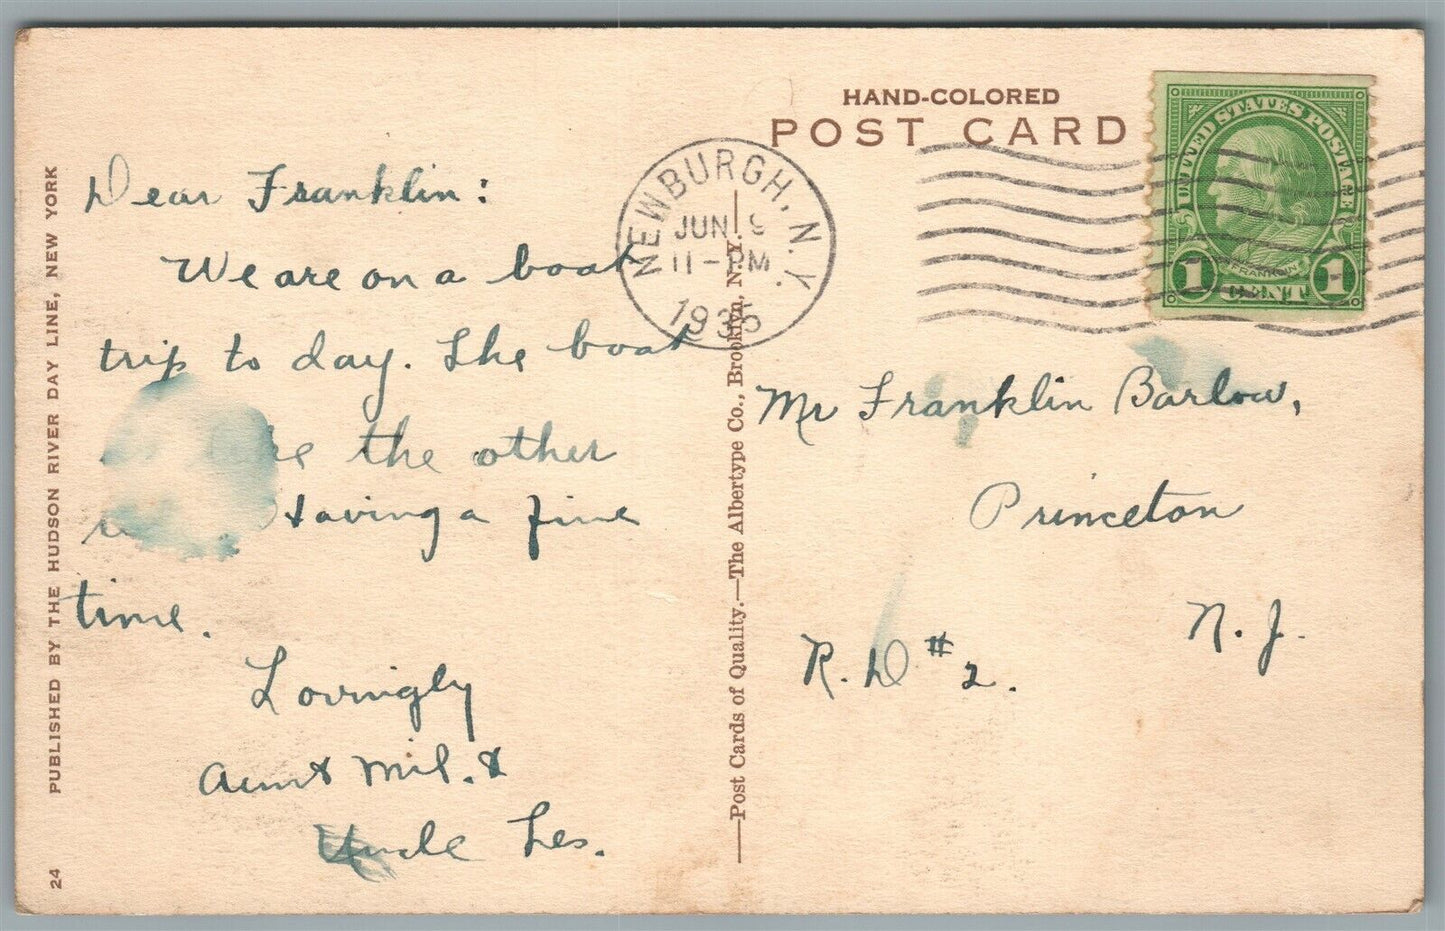 HAND-COLORED
POST CARD
UNITED STATES POSTAGE
FRANKLIN
1 CENT 1
NEWBURGH, N.Y.
JUN 9
11-PM
1935
Dear Franklin:
We are on a boat
trip to day. The boat
the other
Having a fine
time.
Lovingly
Aunt Mil. &
Uncle Les.
Mr Franklin Barlow,
Princeton
N. J.
R. D #2.
PUBLISHED BY THE HUDSON RIVER DAY LINE, NEW YORK
24
—Post Cards of Quality.—The Albertype Co., Brooklyn, N.Y.—